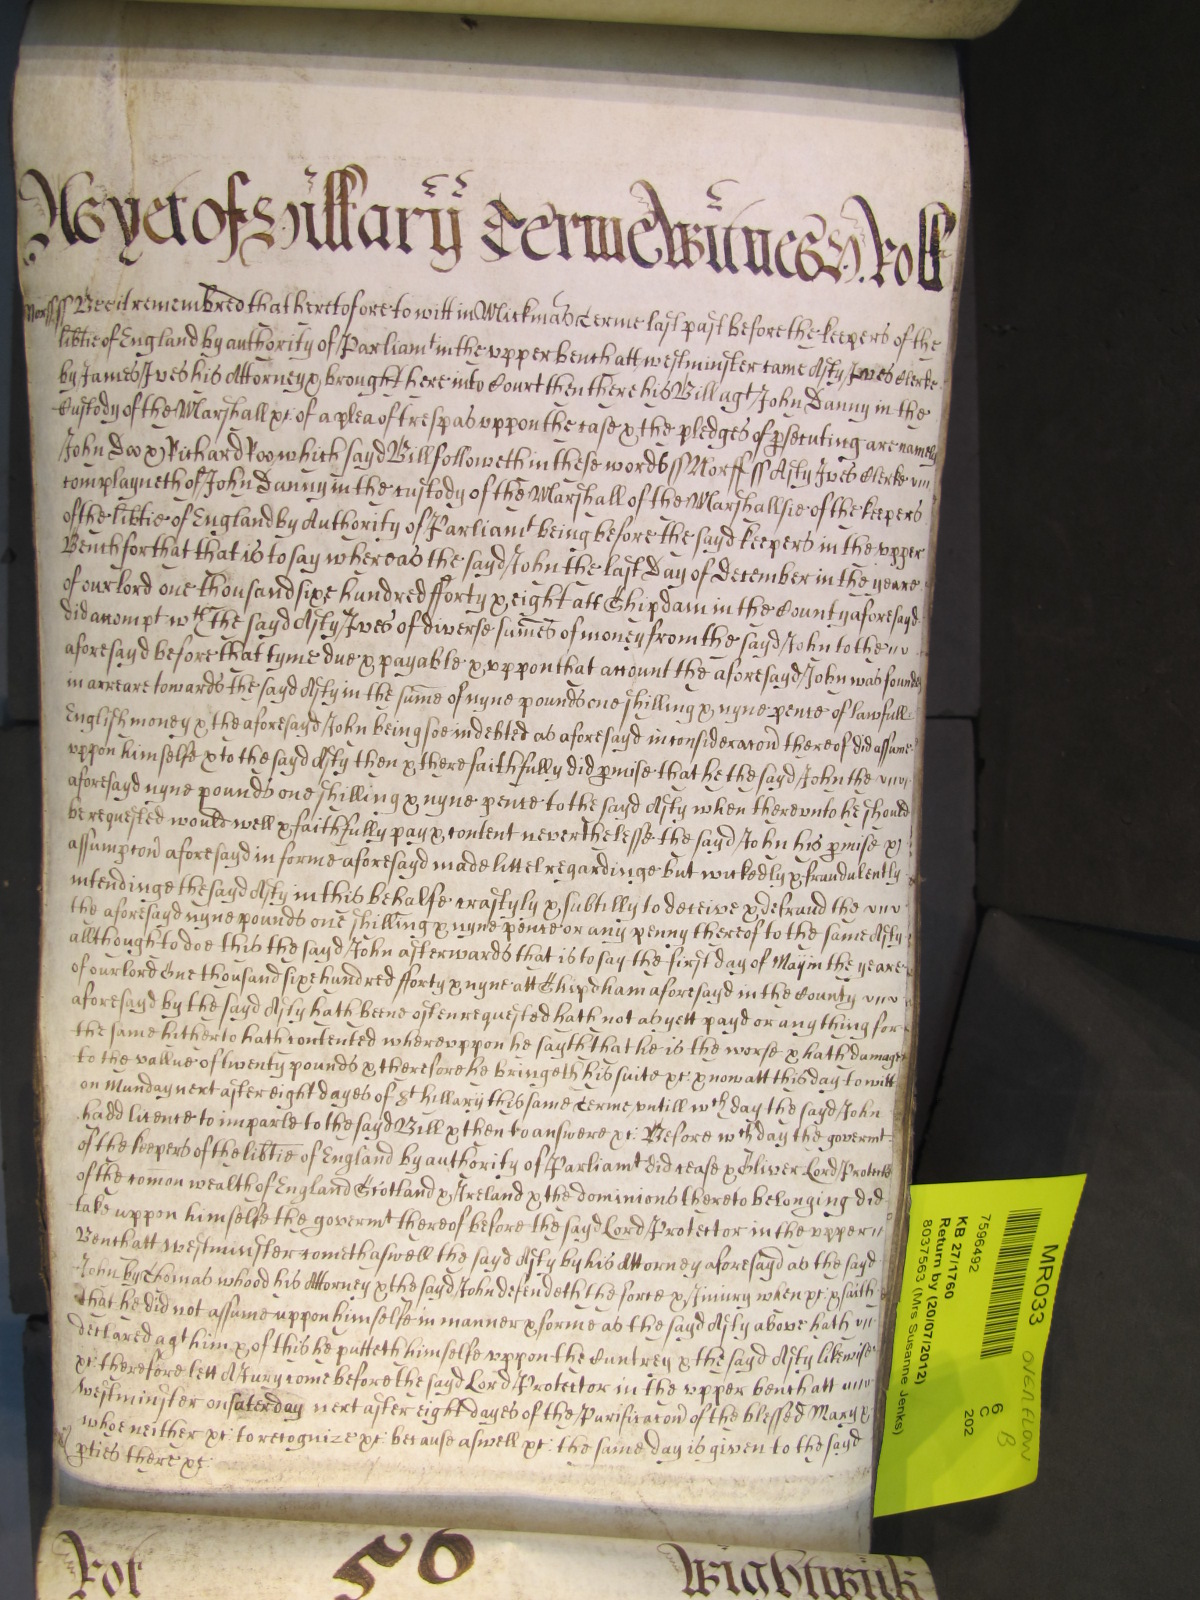 As yet of Hillary Terme Witnes H. Roll
Norff ss Bee it remembred that heretofore to witt in Mickmas Terme last past before the keepers of the
libtie of England by authority of Parliamt in the upper bench att westminster came Asty Ives Clerke
by James Ives his Attorney & brought here into Court then there his Bill agt John Danny in the
Custody of the Marshall &c. of a plea of trespas uppon the case & the pledges of psecuting are namely
John Doo & Richard Roo which sayd Bill followeth in these words ss Norff ss Asty Ives Clerke
complayneth of John Danny in the custody of the Marshall of the Marshallsie of the keepers
of the libtie of England by Authority of Parliamt being before the sayd keepers in the upper
Bench for that that is to say whereas the sayd John the last Day of December in the yeare
of our lord one thousand sixe hundred fforty & eight att Shipdam in the County aforesayd
did accompt wth the sayd Asty Ives of diverse sumes of money from the sayd John to the
aforesayd before that tyme due & payable & uppon that account the aforesayd John was founde
in arreare towards the sayd Asty in the sume of nyne pounds one shilling & nyne pence of lawfull
English money & the aforesayd John being soe indebted as aforesayd in consideracon thereof did assume
uppon himselfe & to the sayd Asty then & there faithfully did pmise that he the sayd John the
aforesayd nyne pounds one shilling & nyne pence to the sayd Asty when thereunto he should
be requested would well & faithfully pay & content neverthelesse the sayd John his pmise &
assumpcon aforesayd in forme aforesayd made littel regardinge but wickedly & fraudulently
intendinge the sayd Asty in this behalfe craftyly & subtilly to deceive & defraud the
the aforesayd nyne pounds one shilling & nyne pence or any penny thereof to the same Asty
allthough to doe this the sayd John afterwards that is to say the first day of May in the yeare
of our lord One thousand sixe hundred fforty & nyne att Shipdham aforesayd in the County
aforesayd by the sayd Asty hath beene often requested hath not as yett payd or any thing for
the same hitherto hath contented whereuppon he sayth that he is the worse & hath damage
to the vallue of twenty pounds & therefore he bringeth his suite &c. & now att this day to witt
on Munday next after eight dayes of St hillary this same Terme untill wch day the sayd John
hadd licence to imparle to the sayd Bill & then to answere &c. Before wch day the govermt
of the keepers of the libtie of England by authority of Parliamt did cease & Oliver Lord Protector
of the comon wealth of England Scotland & Ireland & the dominions thereto belonging did
take uppon himselfe the govermt thereof before the sayd Lord Protector in the upper
Bench att westminster cometh aswell the sayd Asty by his Attorney aforesayd as the sayd
John by Thomas whood his Attorney & the sayd John defendeth the force & Iniury when &c. & saith
that he did not assume uppon himselfe in manner & forme as the sayd Asty above hath
declared agt him & of this he putteth himselfe uppon the Cuntrey & the sayd Asty likewise
&c. therefore lett A Jury come before the sayd Lord Protector in the upper bench att
westminster on saterday next after eight dayes of the Purificacon of the blessed Mary &
whoe neither &c. to recognize &c. because aswell &c. the same day is given to the sayd
pties there &c.
Rot 50 Wightwick
MR033 OVERFLOW
6 B
C
202
7596492
KB 27/1760
Return by (20/07/2012)
8037563 (Mrs Susanne Jenks)